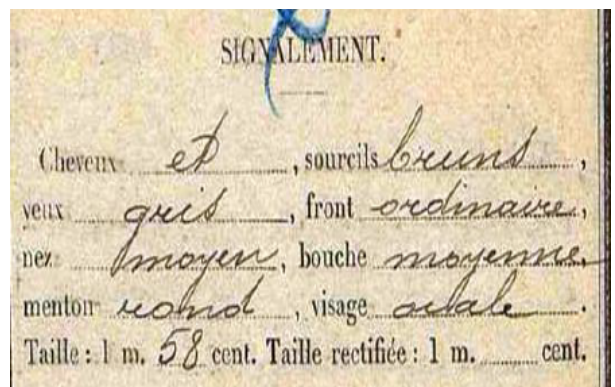 SIGNALEMENT.
Cheveux et, sourcils bruns,
yeux gris, front ordinaire,
nez moyen, bouche moyenne,
menton rond, visage ovale.
Taille : 1 m. 58 cent. Taille rectifiée : 1 m. ........ cent.